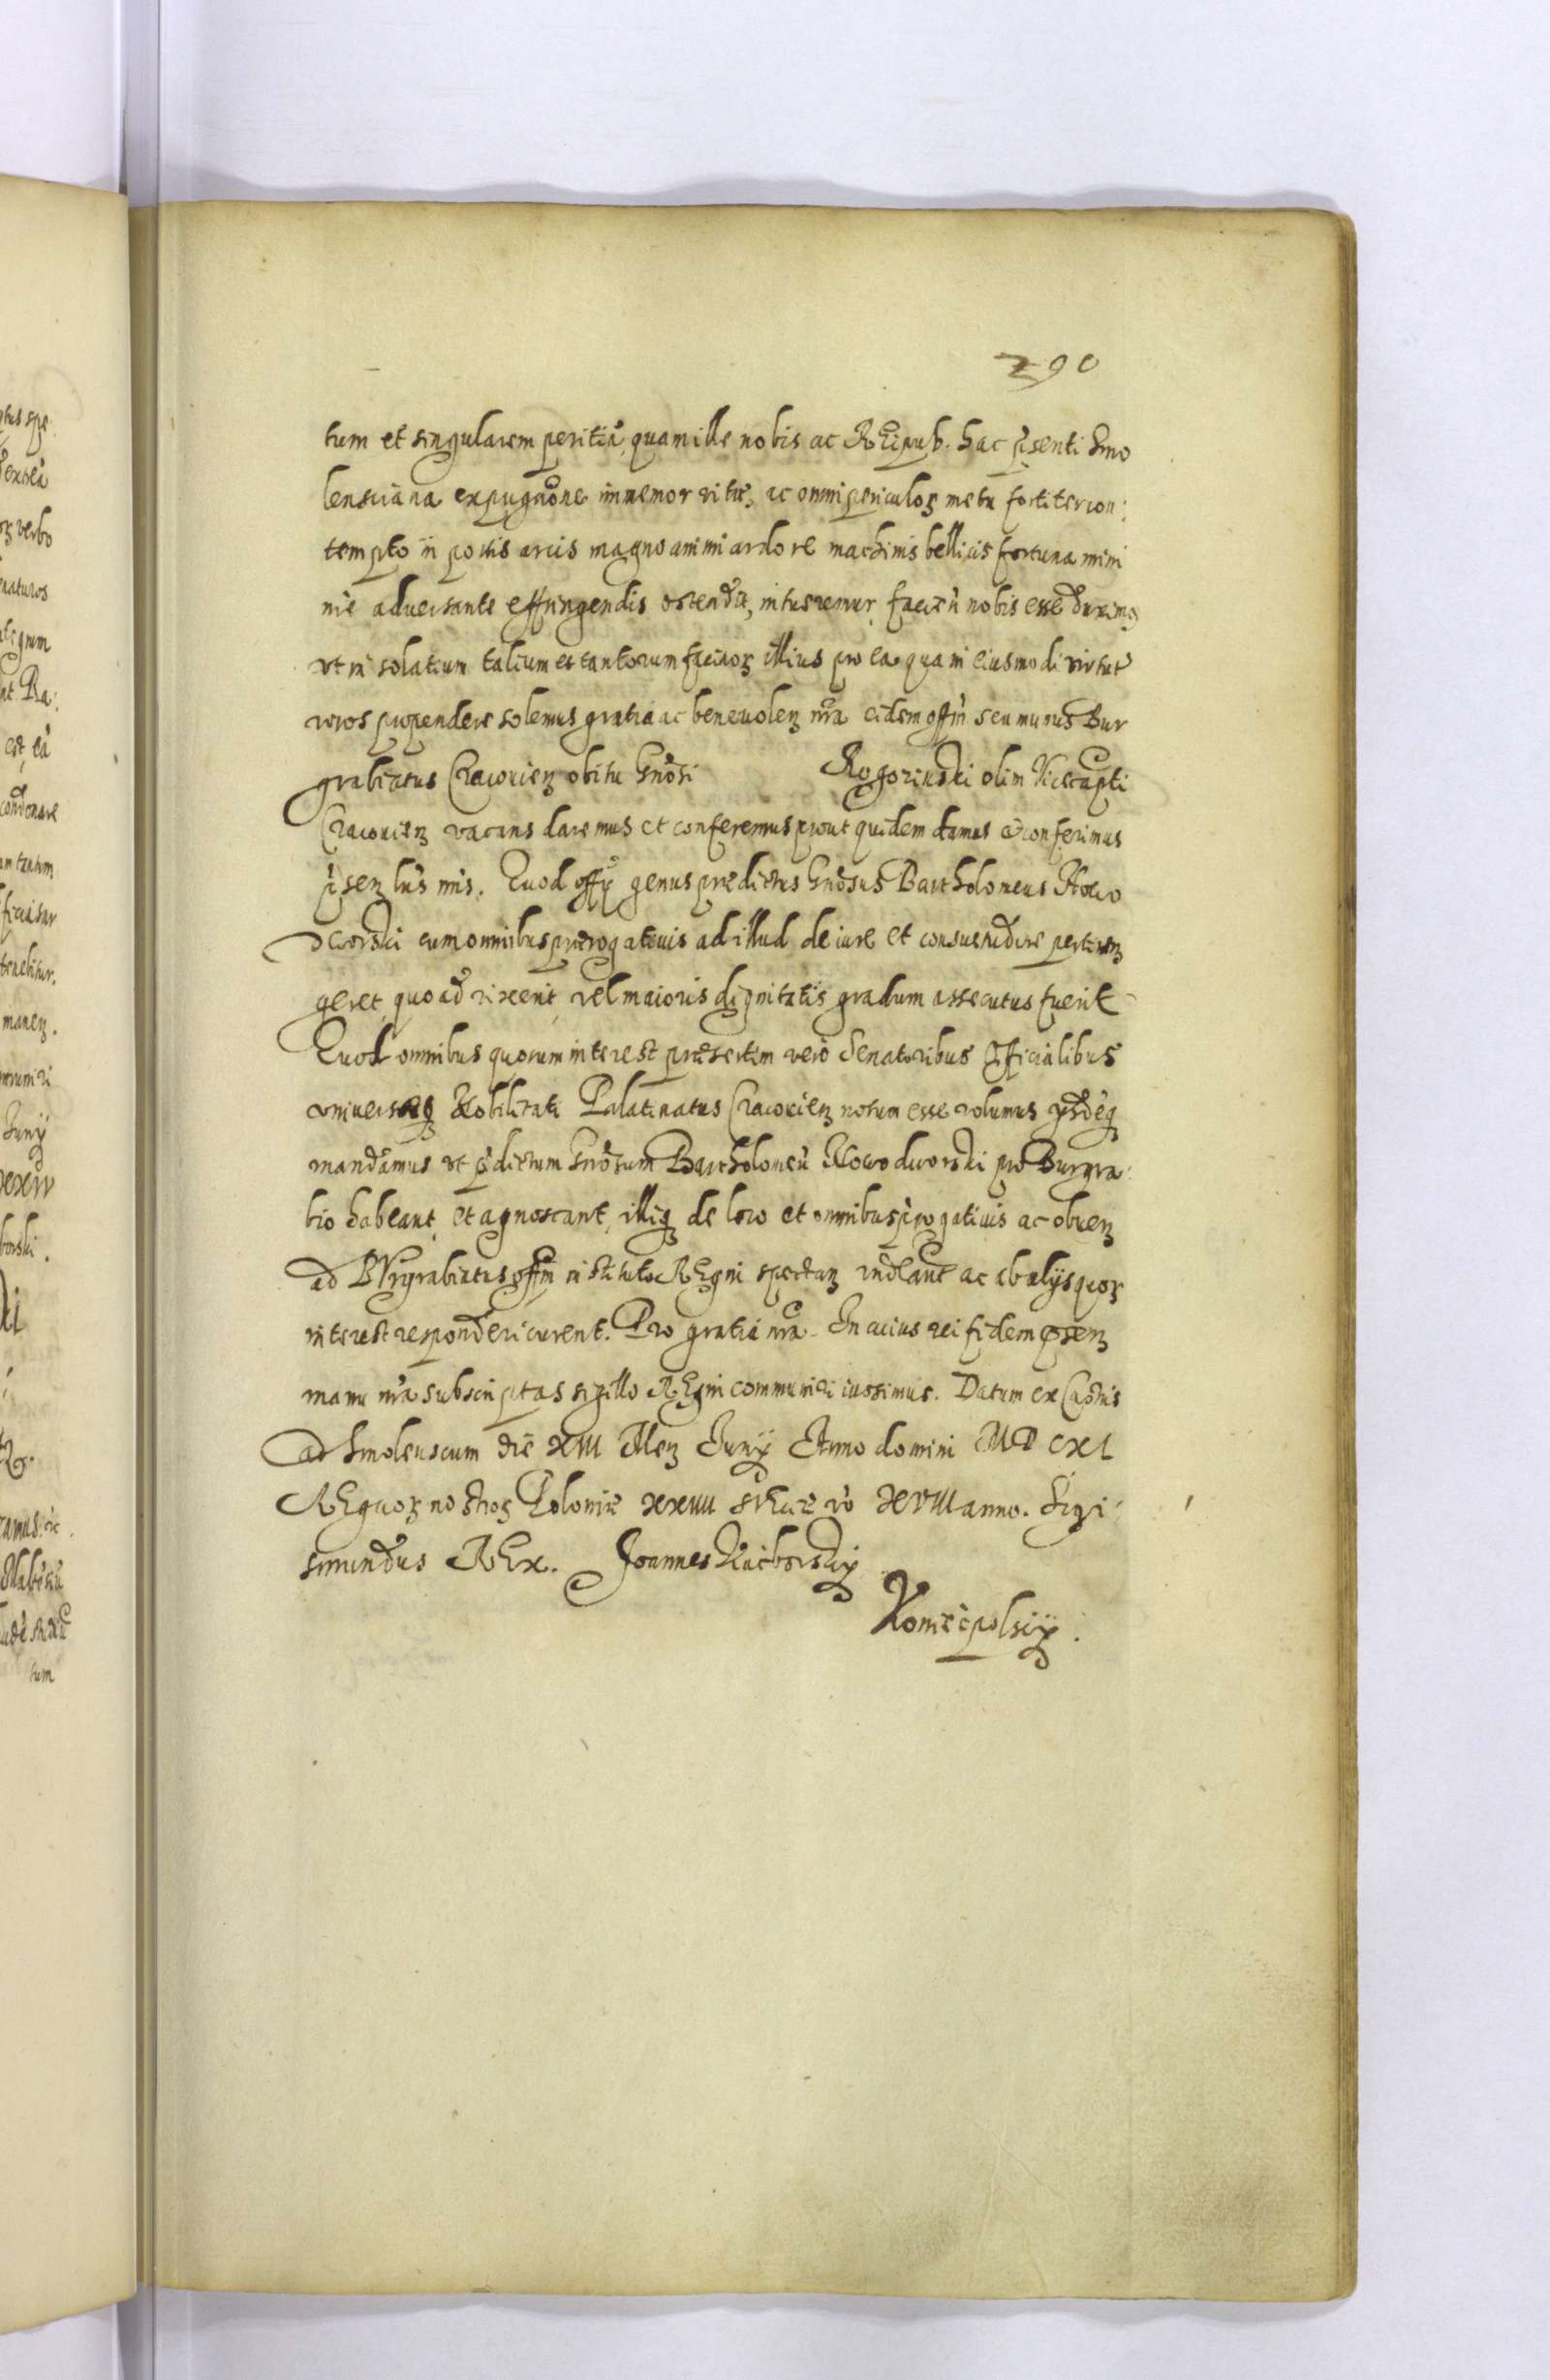 290
tum et singularem peritiã, quam ille nobis ac REipub. hac p̃senti Smo
lensciana expugnõne immemor vitæ, ac omni periculoꝝ metu fortiter con:
tempto in portis arcis magno animi ardore machinis bellicis fortuna mini
me adversante effringendis ostendit, intueremur, facieñ nobis esse duximꝰ
vt in solatium talium et tantorum facinoꝝ illius pro ea qua in eiusmodi virtut̃
viros propendere solemus gratia ac benevoleñ nrã eidem offm̃ seu munus Bur
grabiatus Cracovieñ obitu Gnõsi Rogozinski olim Vicecapti
Cracovieñ vacans daremus et conferemus prout quidem damus et conferimus
p̃señ lr̃is nr̃is. Quod offÿ genus prædictus Gnõsus Bartholomeus Nowo
dworski cum omnibus prærogativis ad illud de iure et consuetudine pertineñ
geret, quoad vixerit, vel maioris dignitatis gradum assecutus fuerit
Quod omnibus quorum interest præsertim vero Senatoribus Officialibus
universæqꝫ Nobilitati Palatinatus Cracovieñ notum esse volumus ÿsdẽqꝫ
mandamus vt p̃dictum Gnõsum Bartholomeũ Nowodworski pro Burgra:
bio habeant, et agnoscant, illiqꝫ de loco et omnibus p̃rogativis ac obveñ
ad BVrgrabiatus offm̃ instituto REgni spectañ ac ab alÿs quoꝝ
interest responderi curent. Pro gratia nrã. In cuius rei fidem p̃señ
manu nrã subscriptas sigillo REgni communiri iussimus. Datum ex Castris
ad Smolenscum die XIII Meñ Junÿ Anno domini MDCXI
REgnoꝝ nostroꝝ Poloniæ XXIIII Sueciæ vo XVIII anno. Sigi
smundus REx. Joannes Kuczborskÿ
Koniecpolsiÿ.